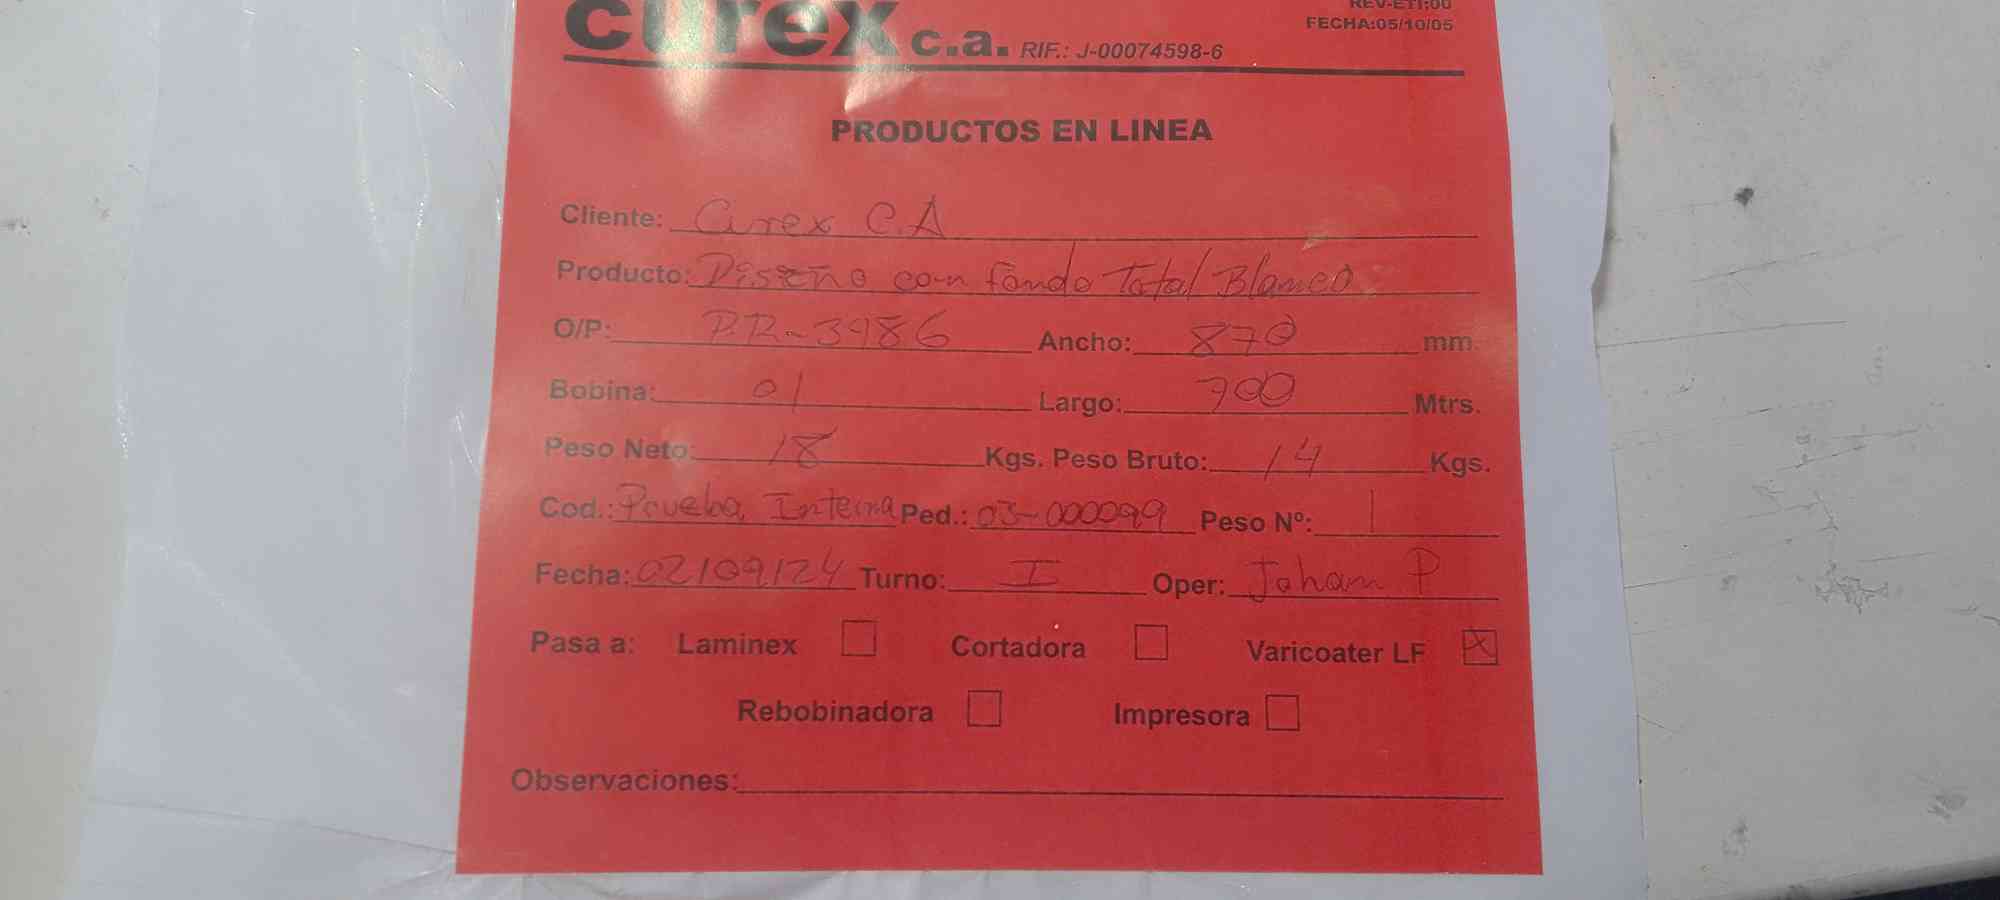 curex c.a. RIF.: J-00074598-6
REV-ETI:00
FECHA:05/10/05
PRODUCTOS EN LINEA
Cliente: Curex C.A
Producto: Diseño con fondo Total Blanco
O/P: PR-3986 Ancho: 870 mm.
Bobina: 01 Largo: 700 Mtrs.
Peso Neto: 18 Kgs. Peso Bruto: 14 Kgs.
Cod.: Prueba Interna Ped.: 03-000099 Peso Nº: 1
Fecha: 02/09/24 Turno: I Oper: Joham P
Pasa a: Laminex Cortadora Varicoater LF X
Rebobinadora Impresora
Observaciones: